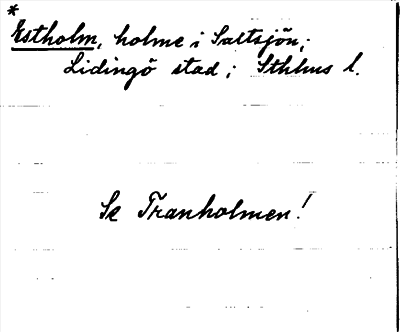 *
Estholm, holme i Saltsjön;
Lidingö stad; Sthlms l.
Se Tranholmen!